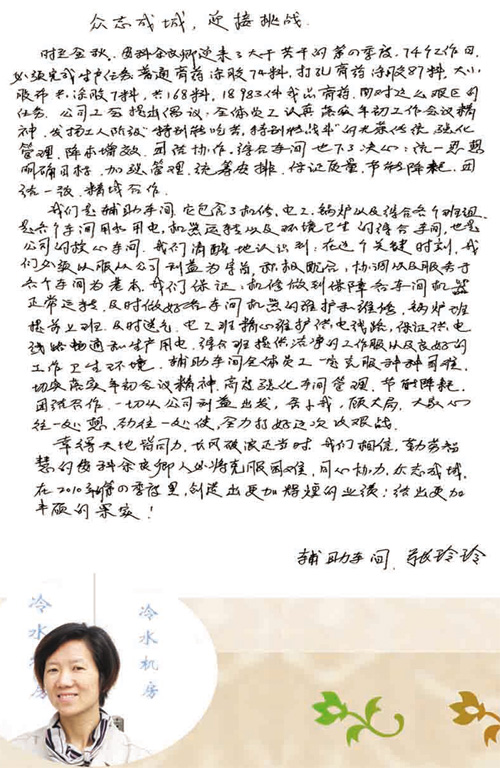 众志成城，迎接挑战.
时至金秋，医科余良卿迎来了大干苦干的第四季度，74个工作日
必须完成生产任务普通膏药涂胶74料，打孔膏药涂胶87料，大小
胶布共涂胶7料，共168料，18983件成品膏药。面对这么艰巨的
任务，公司工会提出倡议：全体员工认真落实年初工作会议精
神，发扬工人阶级"特别能吃苦，特别能战斗"的光荣传统，强化
管理，降本增效，团结协作。综合车间也下了决心：统一思想
明确目标，加强管理，统筹安排，保证质量，节能降耗，团
结一致，精诚合作。
我们是辅助车间，它包含了机修，电工，锅炉以及综合各个班组，
是各个车间用机用电，机器运转以及环境卫生的综合车间，也是
公司的核心车间。我们清醒地认识到：在这个关键时刻，我
们必须以服从公司利益为宗旨，积极配合，协调以及服务于
各个车间为基本，我们保证：机修做到保障各车间机器
正常运转，及时做好各车间机器的维护和维修，锅炉班
提前上班，及时送气，电工班精心维护供电线路，保证供电
线路畅通和生产用电，综合班提供洁净的工作服以及良好的
工作卫生环境。辅助车间全体员工一定克服种种困难，
切实落实年初会议精神，高度强化车间管理，节能降耗，
团结合作，一切从公司利益出发，舍小我，顾大局，大家心
往一处想，劲往一处使，全力打好这次攻艰战。
幸得天地皆同力，长风破浪正当时，我们相信，勤劳智
慧的医科余良卿人必将克服困难，同心协力，众志成城，
在2010年第四季度里，创造出更加辉煌的业绩；结出更加
丰硕的果实！
辅助车间 张玲玲
冷水机房
冷水机房